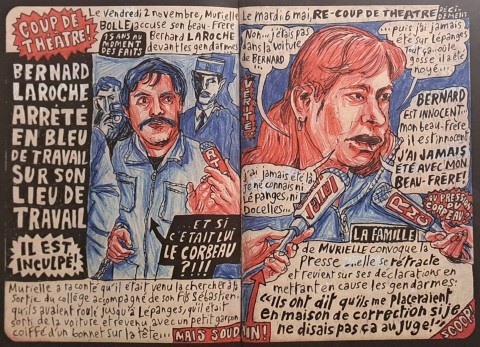 COUP DE
THÉÂTRE!
Le Vendredi 2 novembre, Murielle
BOLLE accuse son beau-frère
15 ANS AU
MOMENT
DES FAITS
Bernard LAROCHE
devant les gendarmes
BERNARD
LAROCHE
ARRÊTÉ
EN BLEU
DE TRAVAIL
SUR SON
LIEU DE
TRAVAIL
IL EST
INCULPÉ!
...ET SI
C'ÉTAIT LUI
LE CORBEAU
?!!!
Murielle a raconté qu'il était venu la chercher à la
sortie du collège accompagné de son fils Sébastien,
qu'ils avaient roulé jusqu'à Lépanges, qu'il était
sorti de la voiture et revenu avec un petit garçon
coiffé d'un bonnet sur la tête...
MAIS SOUDAIN!
Le Mardi 6 mai, RE-COUP DE THÉÂTRE
DÉCI-
DÉMENT
Non... j'étais pas
dans la voiture
de BERNARD
...
...puis j'ai jamais
été sur Lépanges
Tout ça... où le
gosse il a été
noyé...
VÉRITÉ?
BERNARD
EST INNOCENT...
mon beau-frère,
il est innocent
J'AI JAMAIS
ÉTÉ AVEC MON
BEAU-FRÈRE!
...j'ai jamais été là,
je ne connais ni
Lépanges, ni
Docelles...
RTL
RMC
LA FAMILLE
de MURIELLE convoque la
Presse
se rétracte
et revient sur ses déclarations en
mettant en cause les gendarmes:
"Ils ont dit qu'ils me placeraient
en maison de correction si je
ne disais pas ça au juge!"
SCOOP!